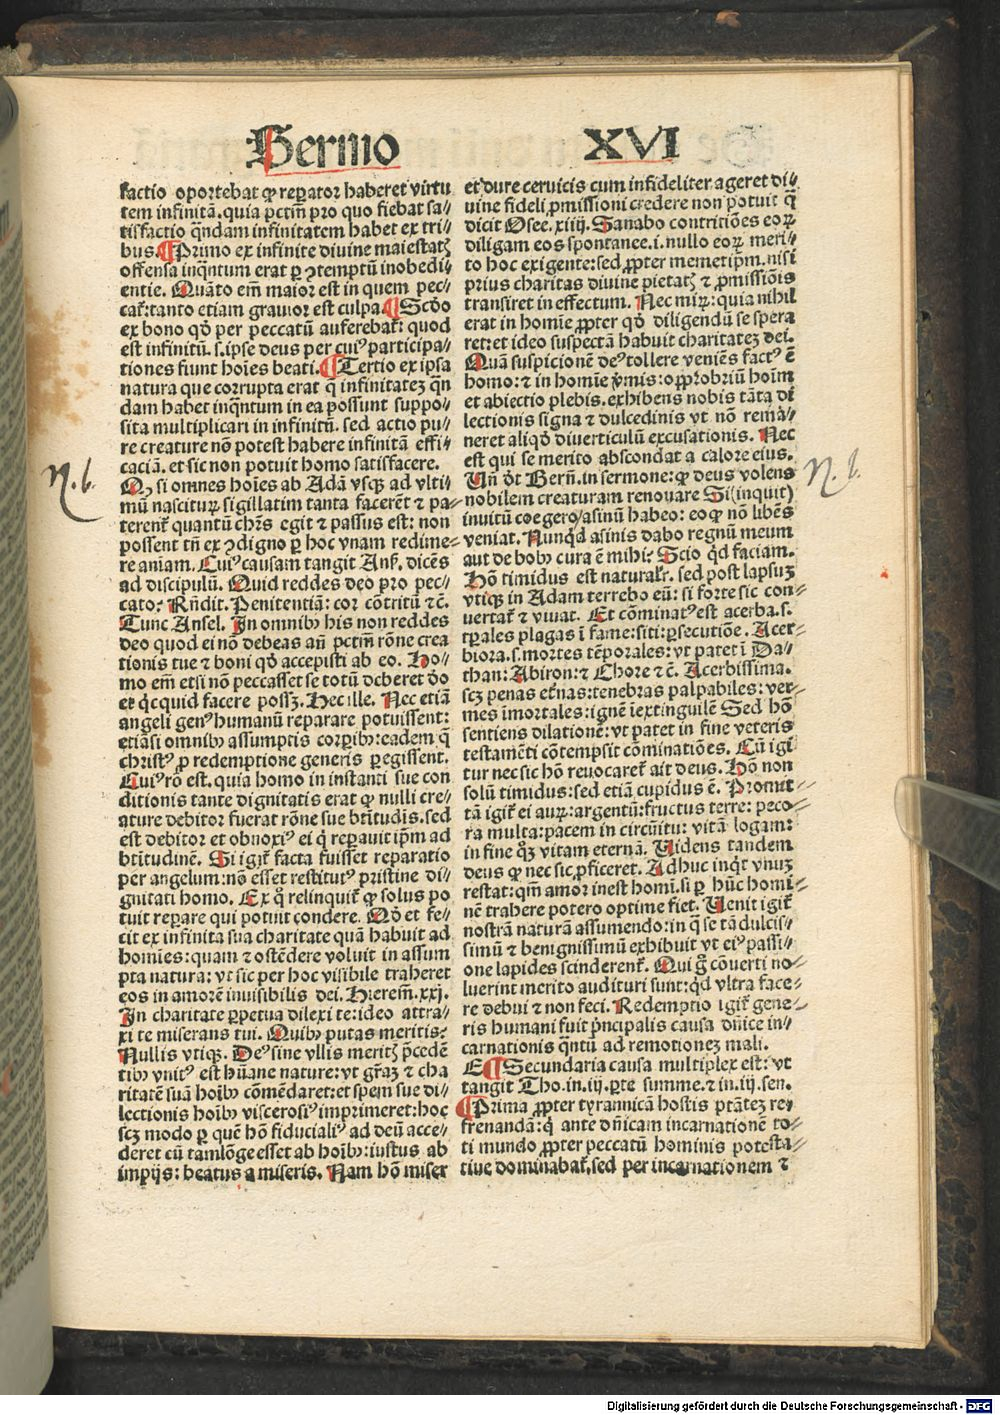 Sermo XVI
factio oportebat ꝙ reꝑator haberet virtu
tem infinitā. quia pctm̄ pro quo fiebat sa⸗
tisfactio qn̄dam infinitatem habet ex tri⸗
bus. ¶Primo ex infinite diuine maiestatꝭ
offensa inqn̄tum erat ꝑ ↄtemptū inobedi⸗
entie. Quāto em̄ maior est in quem pec⸗
cat᷑: tanto etiam grauior est culpa. ¶Scd̄o
ex bono qd̄ per peccatū auferebat᷑: quod
est infinitū. s. ipse deus per cuiꝰ participa⸗
tiones fiunt hoīes beati. ¶Tertio ex ipsa
natura que corrupta erat q̄ infinitateꝫ qn̄
dam habet inqn̄tum in ea possunt suppo⸗
sita multiplicari in infinitū. sed actio pu⸗
re creature nō potest habere infinitā effi⸗
caciā. et sic non potuit homo satisfacere.
N. b.
Qꝫ si omnes hoīes ab Adā vsqꝫ ad vlti⸗
mū nasciturꝝ sigillatim tanta facerēt ⁊ pa⸗
terent᷑ quantū chr̄s egit ⁊ passus est: non
possent tn̄ ex ↄdigno ꝑ hoc vnam redime⸗
re aīam. Cuiꝰ causam tangit Anß. dicēs
ad discipulū. Quid reddes deo pro pec⸗
cato? Rn̄dit. Penitentiā: cor cōtritū ⁊ c̄.
Tunc Ansel. In omnibꝫ his non reddes
deo quod ei nō debeas an̄ pctm̄ rōne crea
tionis tue ⁊ boni qd̄ accepisti ab eo. Ho⸗
mo em̄ etsi nō peccasset se totū deberet deo
et qͥcquid facere possꝫ. Hec ille. Nec etiā
angeli genꝰ humanū reparare potuissent:
etiāsi omnibꝫ assumptis corꝑibꝫ: eadem q̄
christꝰ ꝓ redemptione generis ꝑegissent.
Cuiꝰ rō est. quia homo in instanti sue con
ditionis tante dignitatis erat ꝙ nulli cre⸗
ature debitor fuerat rōne sue btītudīs. sed
est debitor et obnoxiꝰ ei qͥ reꝑauit ip̄m ad
btītudinē. Si igit᷑ facta fuisset reparatio
per angelum: nō esset restitutꝰ pristine di⸗
gnitati homo. Ex qͦ relinquit᷑ ꝙ solus po
tuit reꝑare qui potuit condere. Qd̄ et fe⸗
cit ex infinita sua charitate quā habuit ad
homīes: quam ⁊ ostēdere voluit in assum
pta natura: vt sic per hoc visibile traheret
eos in amorē inuisibilis dei. Hierem̄. xxj.
In charitate ꝑpetua dilexi te: ideo attra⸗
xi te miserans tui. Quibꝫ putas meritis?
Nullis vtiqꝫ. Deꝰ sine vllis meritꝭ p̄cedē
tibꝫ vnitꝰ est hūane nature: vt gr̄aꝫ ⁊ cha
ritatē suā hoībꝫ cōmēdaret: et spem sue di⸗
lectionis hoībꝫ viscerosiꝰ imprimeret: hoc
scꝫ modo ꝑ quē hō fiducialiꝰ ad deū acce⸗
deret cū tamlōge esset ab hoībꝫ: iustus ab
impijs: beatus a miseris. Nam hō miser
et dure ceruicis cum infideliter ageret di⸗
uine fideli ꝓmissioni credere non potuit q̄
dicit Osee. xiiij. Sanabo contritiōes eoꝝ
diligam eos spontanee. i. nullo eoꝝ meri⸗
to hoc exigente: sed ꝓpter memetip̄m. nisi
prius charitas diuine pietatꝭ ⁊ ꝓmissiōis
transiret in effectum. Nec miꝝ: quia nihil
erat in homīe ꝓpter qd̄ diligendū se spera
ret: et ideo suspectā habuit charitateꝫ dei.
Quā suspicionē deꝰ tollere veniēs factꝰ ē
homo: ⁊ in homīe p̄mis: opprobriū hoīm
et abiectio plebis. exhibens nobis tāta di
lectionis signa ⁊ dulcedinis vt nō remā⸗
neret aliqd̄ diuerticulū excusationis. Nec
est qui se merito abscondat a calore eius.
N. b.
Un̄ dt̄ Bern̄. in sermone: ꝙ deus volens
nobilem creaturam renouare Si (inquit)
inuitū coegero/ asinū habeo: eo ꝙ nō libēs
veniat. Nunqͥd asinis dabo regnū meum
aut de bobꝫ cura ē mihi? Scio qͥd faciam.
Hō timidus est naturalr̄. sed post lapsuꝫ
vtiqꝫ in Adam terrebo eū: si forte sic con⸗
uertat᷑ ⁊ viuat. Et cōminatꝰ est acerba. s.
tp̄ales plagas ī fame: siti: ꝑsecutiōe. Acer⸗
biora. s. mortes tēporales: vt patet ī Da⸗
than: Abiron: ⁊ Chore ⁊ c̄. Acerbissima.
scꝫ penas et̄nas: tenebras palpabiles: ver⸗
mes īmortales: ignē īextinguilē Sed hō
sentiens dilationē: vt patet in fine veteris
testamēti cōtempsit cōminatiōes. Cū igi
tur nec sic hō reuocaret᷑ ait deus. Hō non
solū timidus: sed etiā cupidus ē. Promit⸗
tā igit᷑ ei auꝝ: argentū: fructus terre: peco⸗
ra multa: pacem in circūitu: vitā logam:
in fine qꝫ vitam eternā. Uidens tandem
deus ꝙ nec sic ꝓficeret. Adhuc inqͥt vnuꝫ
restat: qm̄ amor inest homi. si ꝑ hūc homi⸗
nē trahere potero optime fiet. Uenit igit᷑
nostrā naturā assumendo: in q̄ se tā dulcis⸗
simū ⁊ benignissimū exhibuit vt eiꝰ passi⸗
one lapides scinderent᷑. Qui gͦ cōuerti no⸗
luerint merito audituri sunt: qͥd vltra face⸗
re debui ⁊ non feci. Redemptio igit᷑ gene⸗
ris humani fuit p̄ncipalis causa dn̄ice in⸗
carnationis qn̄tū ad remotioneꝫ mali.
E ¶Secundaria causa multiplex est: vt
tangit Tho. in. iij. ꝑte summe. ⁊ in. iij. sen.
¶Prima ꝓpter tyrannicā hostis ptāteꝫ re⸗
frenandā: qͥ ante dn̄icam incarnationē to⸗
ti mundo ꝓpter peccatū hominis potesta⸗
tiue dominabat᷑. sed per incarnationem ⁊
Digitalisierung gefördert durch die Deutsche Forschungsgemeinschaft - DFG